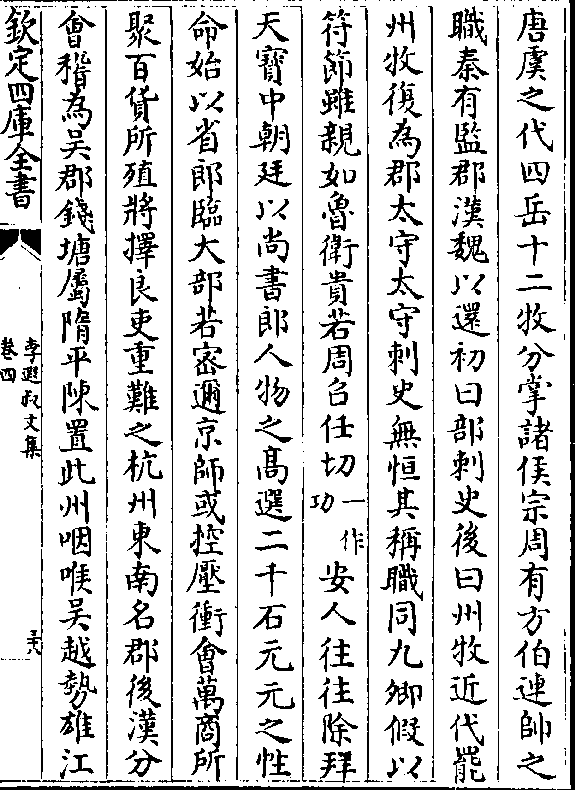 唐虞之代四岳十二牧分掌諸侯宗周有方伯連帥之
職秦有監郡漢魏以還初曰部刺史後曰州牧近代罷
州牧復為郡太守太守刺史無恒其稱職同九卿假以
符節雖親如魯衛貴若周召任切一作功安人往往除拜
天寶中朝廷以尚書郎人物之髙選二千石元元之性
命始以省郎臨大部若宻邇京師或控壓衝會萬商所
聚百貨所殖將擇良吏重難之杭州東南名郡後漢分
會稽為吳郡錢塘屬隋平陳置此州咽喉吳越勢雄江
欽定四庫全書
李遐叔文集
卷四